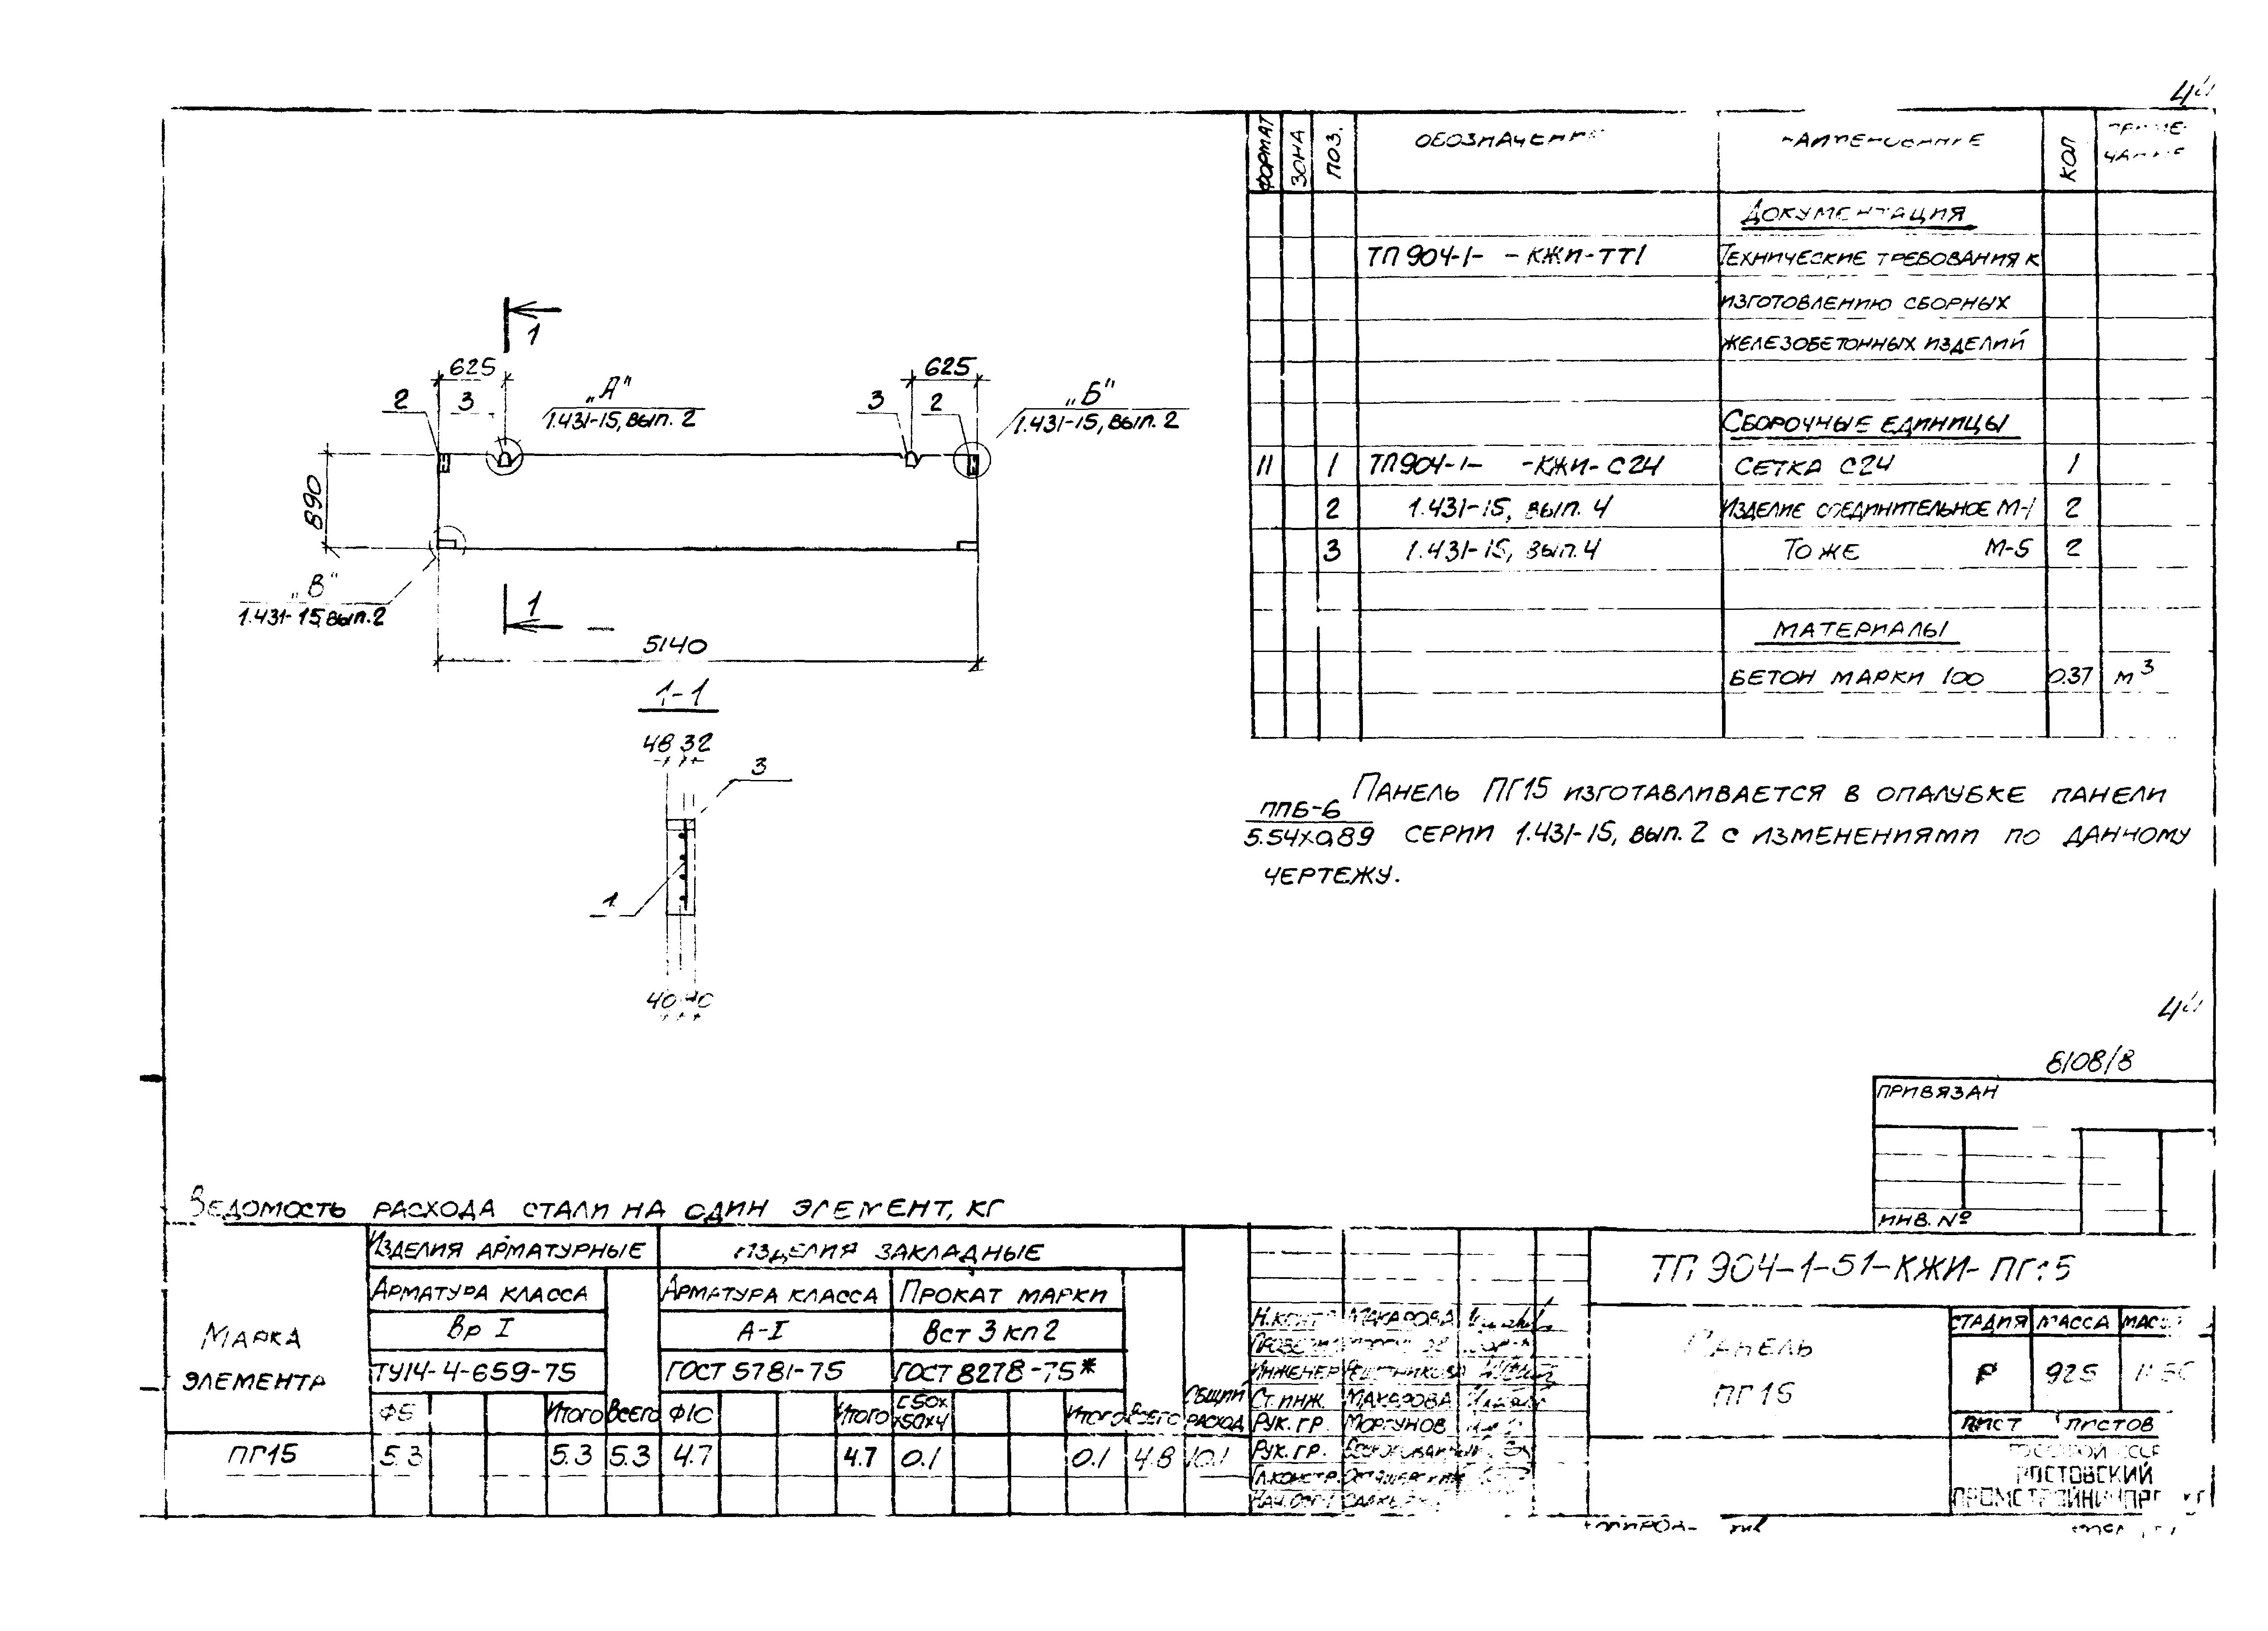 44
1
625
625
2
3
„А"
3
2
„Б"
1.431-15, вып. 2
1.431-15, вып. 2
890
„В"
1.431-15, вып. 2
1
5140
1-1
48 32
3
1
40 40
ФОРМАТ
ЗОНА
ПОЗ.
ОБОЗНАЧЕНИЕ
НАИМЕНОВАНИЕ
КОЛ
ПРИМЕ-
ЧАНИЕ
ДОКУМЕНТАЦИЯ
ТП 904-1- -КЖИ-ТТ1 ТЕХНИЧЕСКИЕ ТРЕБОВАНИЯ К
ИЗГОТОВЛЕНИЮ СБОРНЫХ
ЖЕЛЕЗОБЕТОННЫХ ИЗДЕЛИЙ
СБОРОЧНЫЕ ЕДИНИЦЫ
11 1 ТП 904-1- -КЖИ-С24 СЕТКА С24 1
2 1.431-15, вып. 4 ИЗДЕЛИЕ СОЕДИНИТЕЛЬНОЕ М-1 2
3 1.431-15, вып. 4 ТО ЖЕ М-5 2
МАТЕРИАЛЫ
БЕТОН МАРКИ 100 0.37 м³
ПАНЕЛЬ ПГ15 ИЗГОТАВЛИВАЕТСЯ В ОПАЛУБКЕ ПАНЕЛИ
ППБ-6
5.54х0.89 СЕРИИ 1.431-15, вып. 2 С ИЗМЕНЕНИЯМИ ПО ДАННОМУ
ЧЕРТЕЖУ.
44
8108/8
ПРИВЯЗАН
ИНВ. №
ВЕДОМОСТЬ РАСХОДА СТАЛИ НА ОДИН ЭЛЕМЕНТ, КГ
МАРКА
ЭЛЕМЕНТА
ИЗДЕЛИЯ АРМАТУРНЫЕ
ИЗДЕЛИЯ ЗАКЛАДНЫЕ
АРМАТУРА КЛАССА
АРМАТУРА КЛАССА
ПРОКАТ МАРКИ
Вр I
А-I
Вст 3 кп 2
ТУ14-4-659-75
ГОСТ 5781-75
ГОСТ 8278-75*
ОБЩИЙ
РАСХОД
Ф5 ИТОГО ВСЕГО Ф10 ИТОГО С50х
х50х4 ИТОГО ВСЕГО
ПГ15 5.3 5.3 5.3 4.7 4.7 0.1 0.1 4.8 10.1
Н.КОНТР МАКАРОВА
ИНЖЕНЕР РЕШЕТНИКОВА
СТ. ИНЖ. МАКАРОВА
РУК. ГР. МОРГУНОВ
РУК. ГР.
ГЛ.КОНСТР.
ТП 904-1-51-КЖИ-ПГ15
ПАНЕЛЬ
ПГ15
СТАДИЯ МАССА
Р 925
ЛИСТ ЛИСТОВ
ГОССТРОЙ СССР
РОСТОВСКИЙ